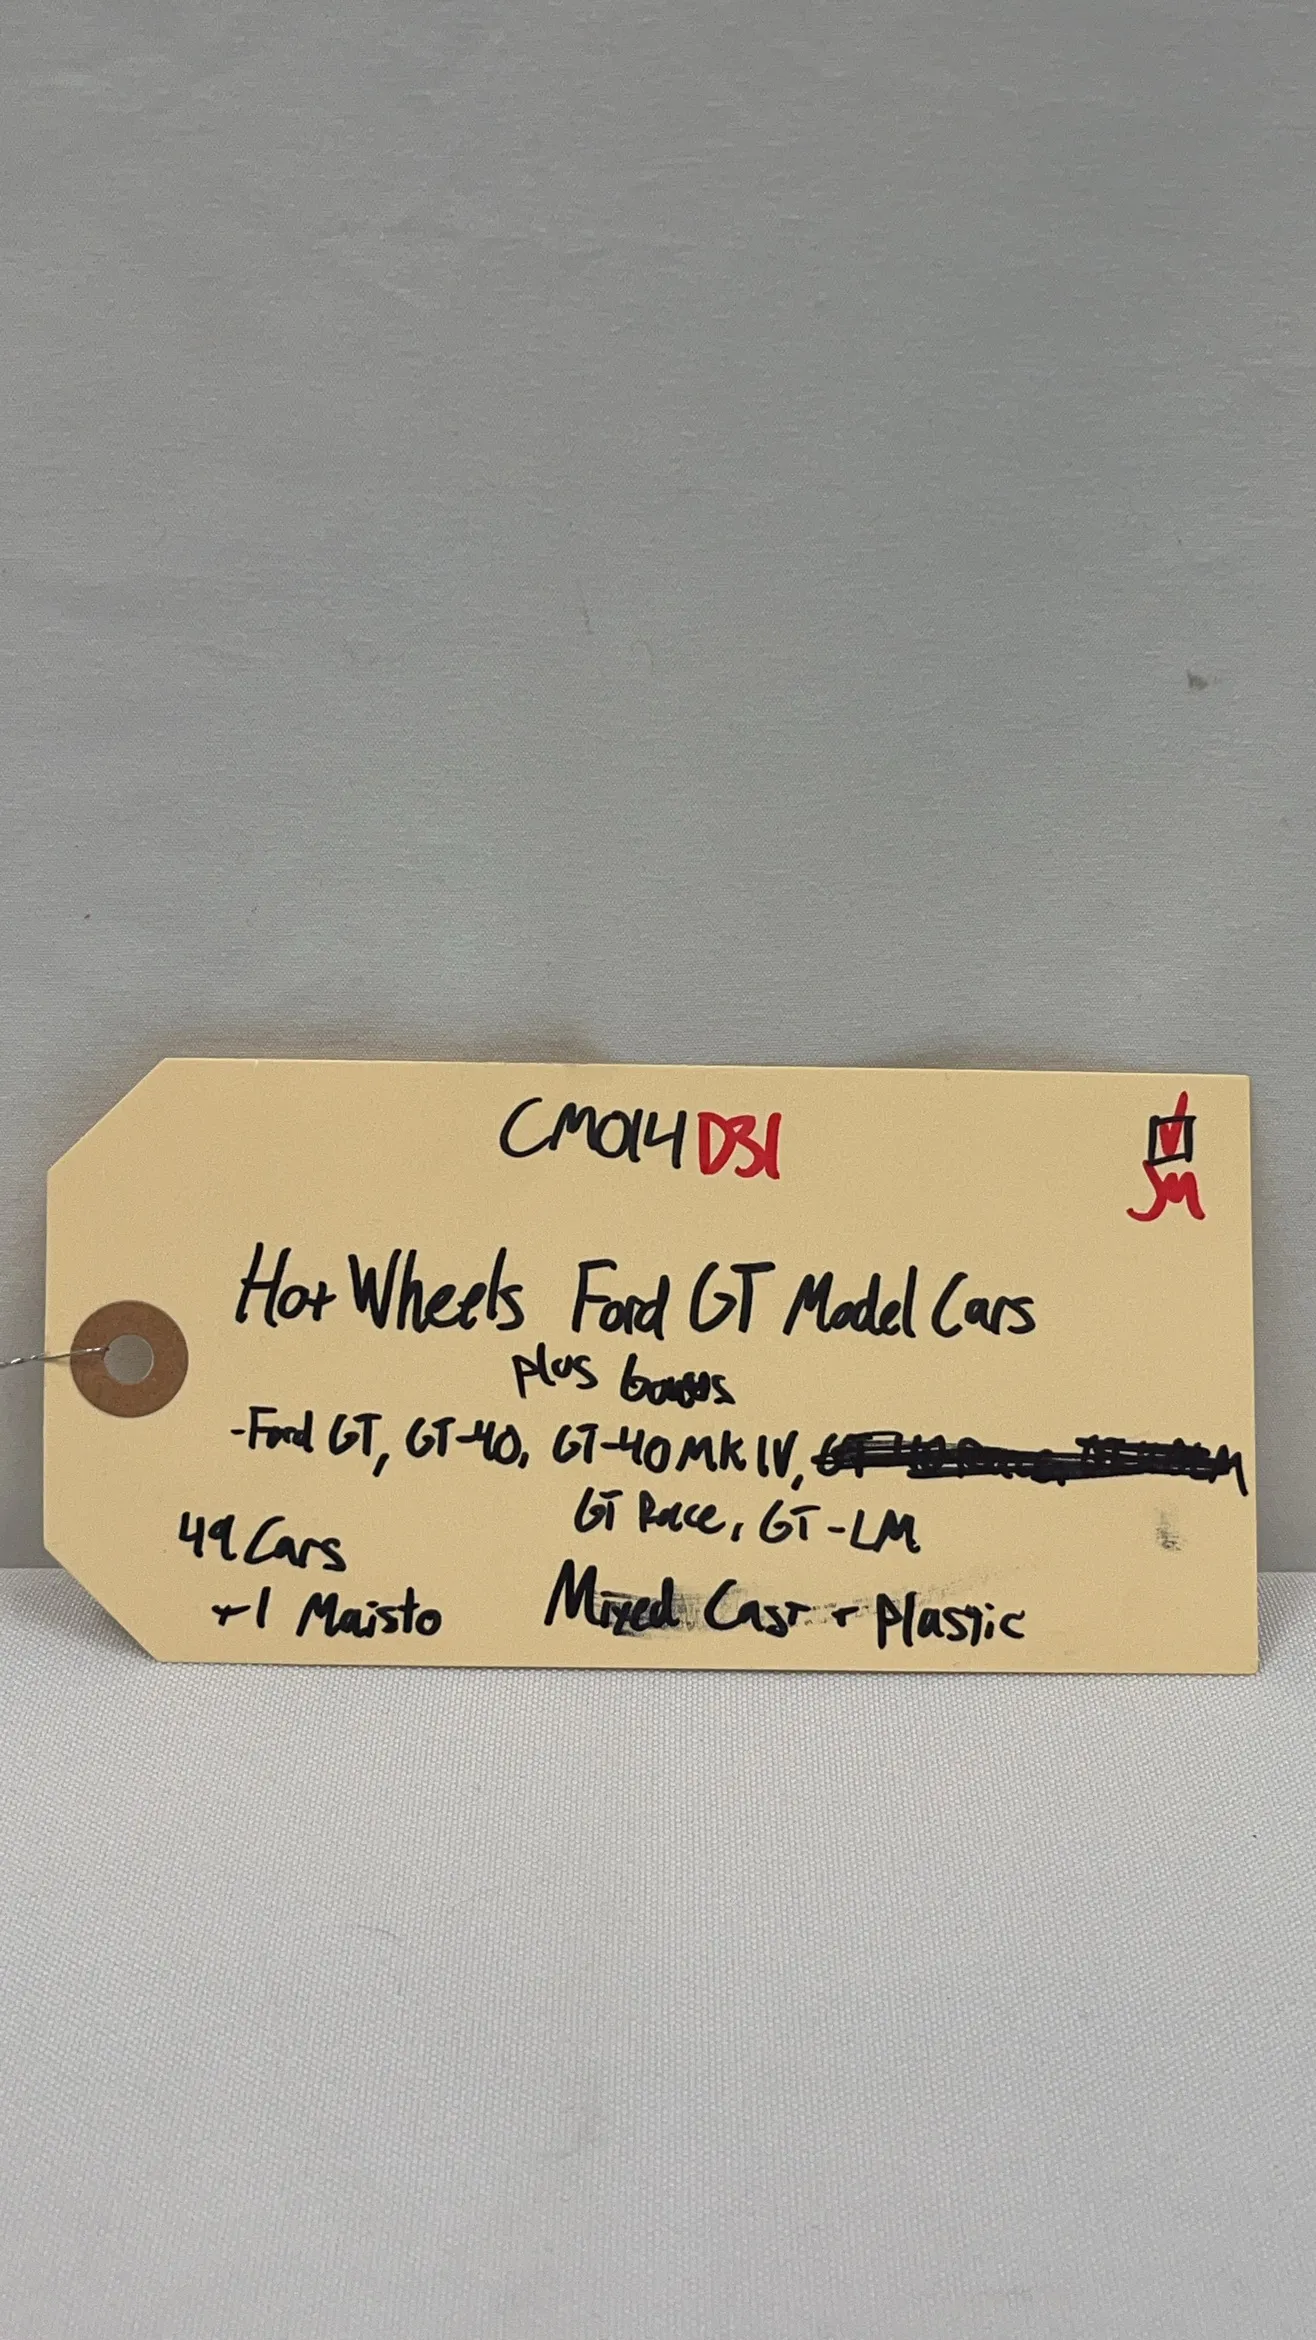 CM014 D31
JM
Hot Wheels Ford GT Model Cars
plus bonus
-Ford GT, GT-40, GT-40 MK IV,
GT Race, GT-LM
49 Cars
+1 Maisto
Mixed Cast + Plastic